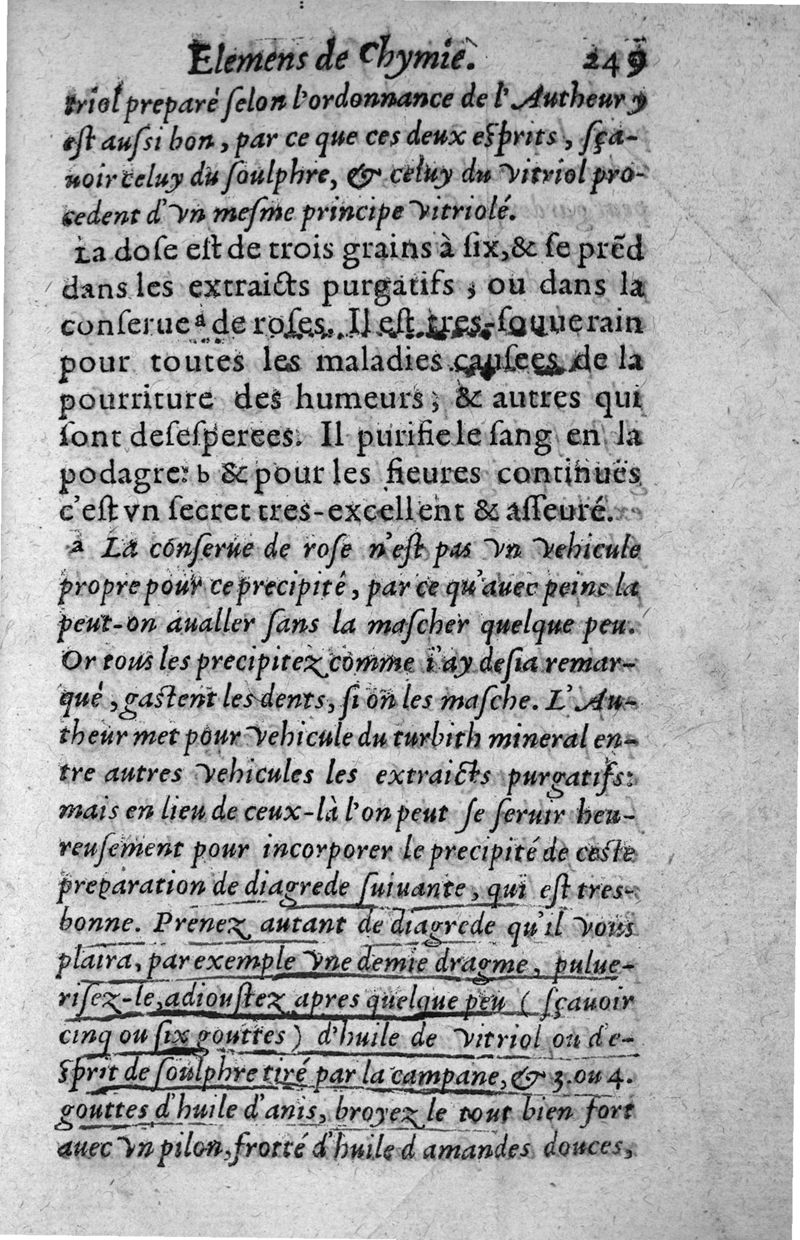 Elemens de Chymie. 249
triol preparé ſelon l'ordonnance de l'Autheur,
eſt auſſi bon, par ce que ces deux eſprits, ſça-
uoir celuy du ſoulphre, & celuy du Vitriol pro-
cedent d'Vn meſme principe Vitriolé.
La doſe eſt de trois grains à ſix, & ſe prẽd
dans les extraicts purgatifs, ou dans la
conſerue a de roſes. Il eſt tres-ſouuerain
pour toutes les maladies cauſees de la
pourriture des humeurs; & autres qui
ſont deſeſperees. Il purifie le ſang en la
podagre: b & pour les fieures continuës
c'eſt vn ſecret tres-excellent & aſſeuré.
a La conſerue de roſe n'eſt pas Vn Vehicule
propre pour ce precipité, par ce qu'auec peine la
peut-on aualler ſans la maſcher quelque peu.
Or tous les precipitez comme i'ay deſia remar-
qué, gaſtent les dents, ſi on les maſche. L'Au-
theur met pour Vehicule du turbith mineral en-
tre autres Vehicules les extraicts purgatifs:
mais en lieu de ceux-là l'on peut ſe ſeruir heu-
reuſement pour incorporer le precipité de ceſte
preparation de diagrede ſuiuante, qui eſt tres-
bonne. Prenez autant de diagrede qu'il Vous
plaira, par exemple Vne demie dragme, pulue-
riſez-le, adiouſtez apres quelque peu (ſçauoir
cinq ou ſix gouttes) d'huile de Vitriol ou d'e-
ſprit de ſoulphre tiré par la campane, & 3. ou 4.
gouttes d'huile d'anis, broyez le tout bien fort
auec Vn pilon, frotté d'huile d amandes douces,